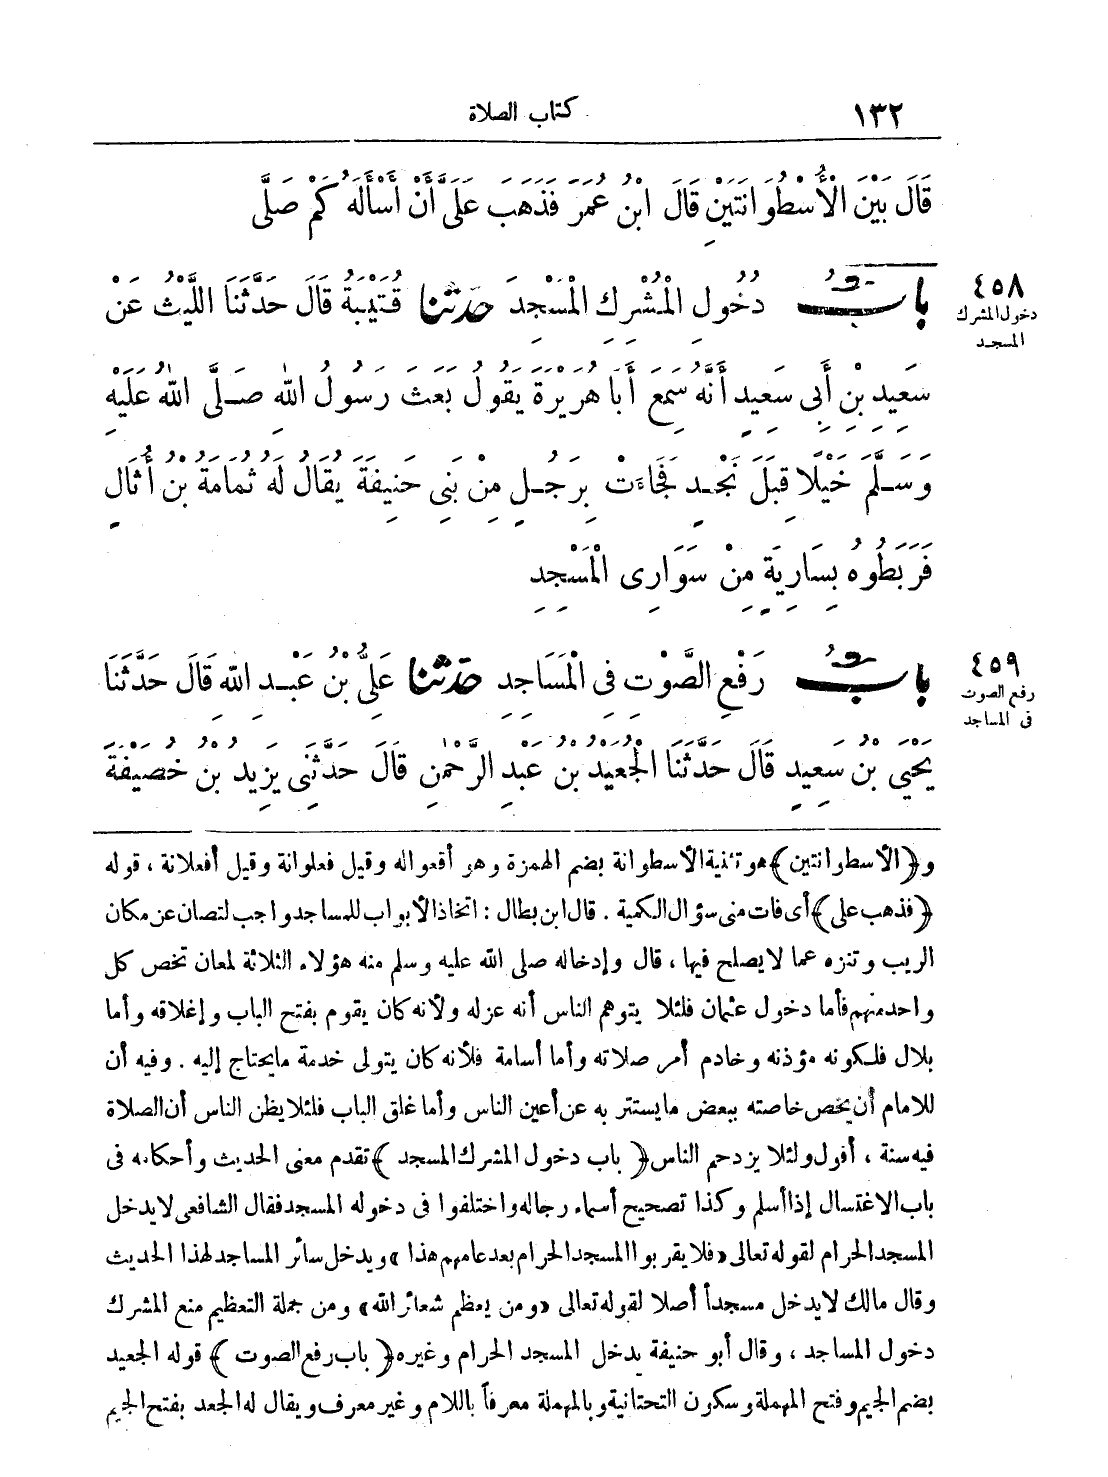 ١٣٢ كتاب الصلاة
قَالَ بَيْنَ الْأُسْطُوَانَتَيْنِ قَالَ ابْنُ عُمَرَ فَذَهَبَ عَلَىَّ أَنْ أَسْأَلَهُ كَمْ صَلَّى
٤٥٨
دخول المشرك
المسجد
بابٌ دُخُولِ الْمُشْرِكِ الْمَسْجِدَ حَدَّثَنَا قُتَيْبَةُ قَالَ حَدَّثَنَا اللَّيْثُ عَنْ
سَعِيدِ بْنِ أَبِى سَعِيدٍ أَنَّهُ سَمِعَ أَبَا هُرَيْرَةَ يَقُولُ بَعَثَ رَسُولُ اللهِ صَلَّى اللهُ عَلَيْهِ
وَسَلَّمَ خَيْلًا قِبَلَ نَجْدٍ فَجَاءَتْ بِرَجُلٍ مِنْ بَنِى حَنِيفَةَ يُقَالُ لَهُ ثُمَامَةُ بْنُ أُثَالٍ
فَرَبَطُوهُ بِسَارِيَةٍ مِنْ سَوَارِى الْمَسْجِدِ
٤٥٩
رفع الصوت
فى المساجد
بابٌ رَفْعِ الصَّوْتِ فِى الْمَسَاجِدِ حَدَّثَنَا عَلِىُّ بْنُ عَبْدِ اللهِ قَالَ حَدَّثَنَا
يَحْيَى بْنُ سَعِيدٍ قَالَ حَدَّثَنَا الْجُعَيْدُ بْنُ عَبْدِ الرَّحْمٰنِ قَالَ حَدَّثَنِى يَزِيدُ بْنُ خُصَيْفَةَ
و﴿الأسطوانتين﴾ هو تثنية الأسطوانة بضم الهمزة وهو أفعواله وقيل فعلوانة وقيل أفعلانة ، قوله
﴿فذهب على﴾ أى فات منى سؤال الكمية . قال ابن بطال : اتخاذ الأبواب للمساجد واجب لتصان عن مكان
الريب وتنزه عما لا يصلح فيها ، قال وإدخاله صلى الله عليه وسلم منه هؤلاء الثلاثة لمعان تخص كل
واحد منهم فأما دخول عثمان فلئلا يتوهم الناس أنه عزله ولأنه كان يقوم بفتح الباب وإغلاقه وأما
بلال فلكونه مؤذنه وخادم أمر صلاته وأما أسامة فلأنه كان يتولى خدمة ما يحتاج إليه . وفيه أن
للامام أن يخص خاصته ببعض ما يستتر به عن أعين الناس وأما غلق الباب فلئلا يظن الناس أن الصلاة
فيه سنة ، أقول ولئلا يزدحم الناس ﴿باب دخول المشرك المسجد﴾ تقدم معنى الحديث وأحكامه فى
باب الاغتسال إذا أسلم وكذا تصحيح أسماء رجاله واختلفوا فى دخوله المسجد فقال الشافعى لا يدخل
المسجد الحرام لقوله تعالى «فلا يقربوا المسجد الحرام بعد عامهم هذا» ويدخل سائر المساجد لهذا الحديث
وقال مالك لا يدخل مسجداً أصلا لقوله تعالى «ومن يعظم شعائر الله» ومن جملة التعظيم منع المشرك
دخول المساجد ، وقال أبو حنيفة يدخل المسجد الحرام وغيره ﴿باب رفع الصوت﴾ قوله الجعيد
بضم الجيم وفتح المهملة وسكون التحتانية وبالمهملة معرفاً باللام وغير معرف ويقال له الجعد بفتح الجيم